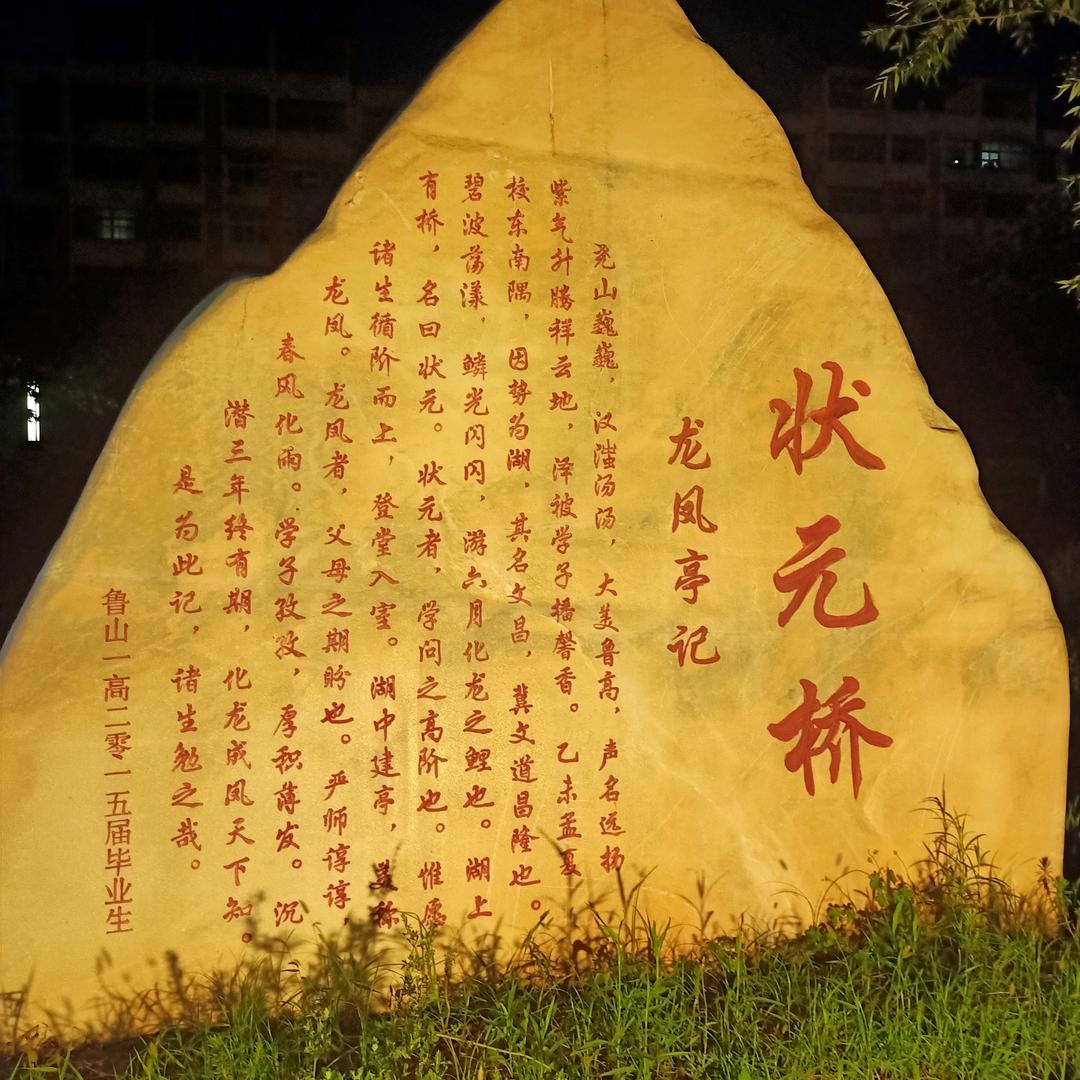 状元桥
龙凤亭记
尧山巍巍，汉滍汤汤，大美鲁高，声名远扬
紫气升腾祥云地，泽被学子播馨香。乙未孟夏
校东南隅，因势为湖，其名文昌，冀文道昌隆也。
碧波荡漾，鳞光闪闪，游六月化龙之鲤也。湖上
有桥，名曰状元。状元者，学问之高阶也。惟愿
诸生循阶而上，登堂入室。湖中建亭，美称
龙凤。龙凤者，父母之期盼也。严师谆谆，
春风化雨。学子孜孜，厚积薄发。沉
潜三年终有期，化龙成凤天下知。
是为此记，诸生勉之哉。
鲁山一高二零一五届毕业生